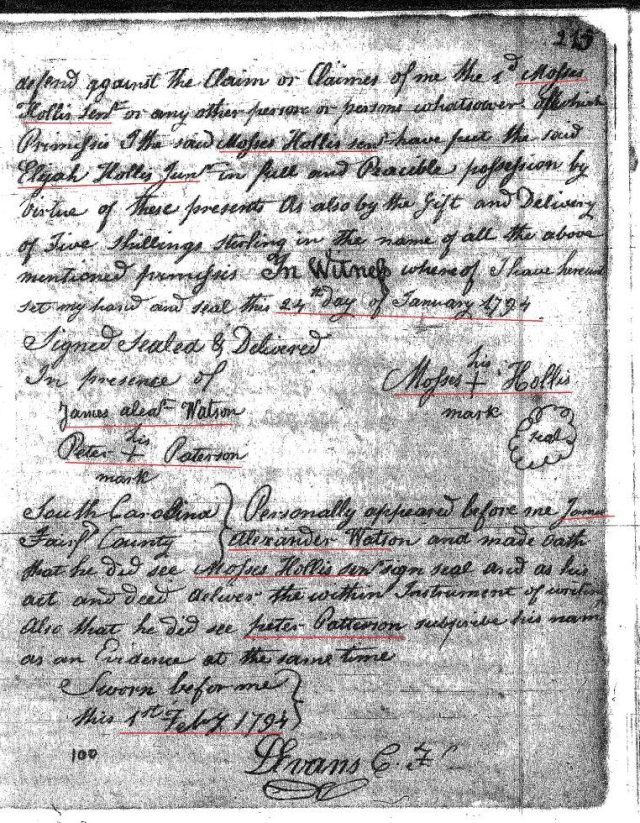 213
defend against the Claim or Claimes of me the sd Mosses
Hollis Senr or any other person or persons whatsoever of which
Premisses I the said Mosses Hollis senr have put the said
Elijah Hollis Junr in full and Peacible possession by
virtue of these presents As also by the Gift and Delivery
of Five Shillings sterling in the name of all the above
mentioned premisis In Witness whereof I have hereunto
set my hand and seal this 24th day of January 1794
Signed Sealed & Delivered
In presence of
Mosses his + Hollis
mark
James alexr Watson
seal
Peter his + Paterson
mark
South Carolina } Personally appeared before me James
Fairfd County } Alexander Watson and made oath
that he did see Mosses Hollis senr sign seal and as his
act and deed deliver the within Instrument of writing
Also that he did see peter Patterson subscribe his name
as an Evidence at the same time
Sworn before me }
this 1st Feby 1794 }
100
DEvans C. F.